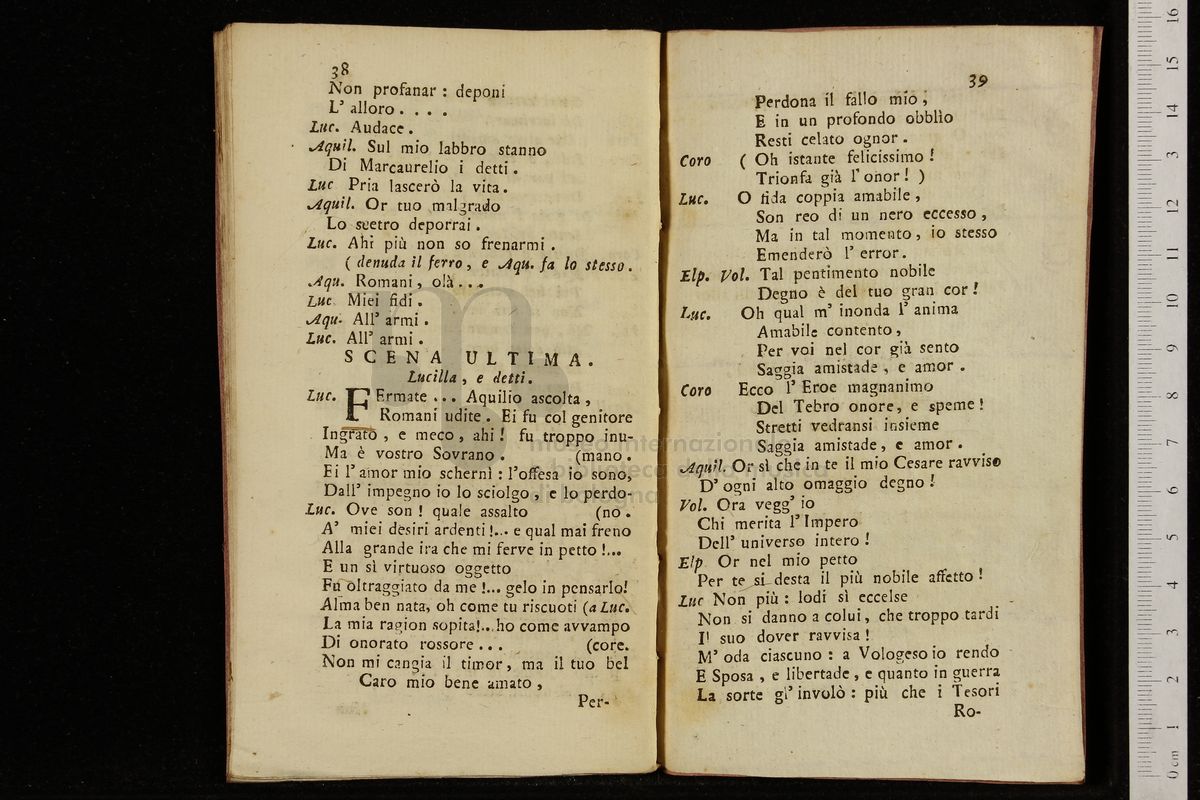 38
Non profanar : deponi
L' alloro . . . .
Luc. Audace .
Aquil. Sul mio labbro stanno
Di Marcaurelio i detti .
Luc Pria lascerò la vita .
Aquil. Or tuo malgrado
Lo scetro deporrai .
Luc. Ahi più non so frenarmi .
( denuda il ferro , e Aqu. fa lo stesso .
Aqu. Romani , olà . . .
Luc Miei fidi .
Aqu. All' armi .
Luc. All' armi .
SCENA ULTIMA.
Lucilla , e detti .
Luc. FErmate ... Aquilio ascolta ,
Romani udite . Ei fu col genitore
Ingrato , e meco , ahi ! fu troppo inu-
Ma è vostro Sovrano . (mano .
Ei l' amor mio schernì : l' offesa io sono,
Dall' impegno io lo sciolgo , e lo perdo-
Luc. Ove son ! quale assalto (no .
A' miei desiri ardenti !... e qual mai freno
Alla grande ira che mi ferve in petto !...
E un sì virtuoso oggetto
Fu oltraggiato da me !... gelo in pensarlo!
Alma ben nata, oh come tu riscuoti (a Luc.
La mia ragion sopita!...ho come avvampo
Di onorato rossore ... (core.
Non mi cangia il timor, ma il tuo bel
Caro mio bene amato ,
Per-
39
Perdona il fallo mio ,
E in un profondo obblìo
Resti celato ognor .
Coro ( Oh istante felicissimo !
Trionfa già l' onor ! )
Luc. O fida coppia amabile ,
Son reo di un nero eccesso ,
Ma in tal momento , io stesso
Emenderò l' error .
Elp. Vol. Tal pentimento nobile
Degno è del tuo gran cor !
Luc. Oh qual m' inonda l' anima
Amabile contento ,
Per voi nel cor già sento
Saggia amistade , e amor .
Coro Ecco l' Eroe magnanimo
Del Tebro onore , e speme !
Stretti vedransi insieme
Saggia amistade , e amor .
Aquil. Or sì che in te il mio Cesare ravviso
D' ogni alto omaggio degno !
Vol. Ora vegg' io
Chi merita l' Impero
Dell' universo intero !
Elp Or nel mio petto
Per te si desta il più nobile affetto !
Luc Non più : lodi sì eccelse
Non si danno a colui , che troppo tardi
Il suo dover ravvisa !
M' oda ciascuno : a Vologeso io rendo
E Sposa , e libertade , e quanto in guerra
La sorte gl' involò : più che i Tesori
Ro-
museo internazionale
e biblioteca della musica
di bologna
0 cm 1 2 3 4 5 6 7 8 9 10 11 12 13 14 15 16